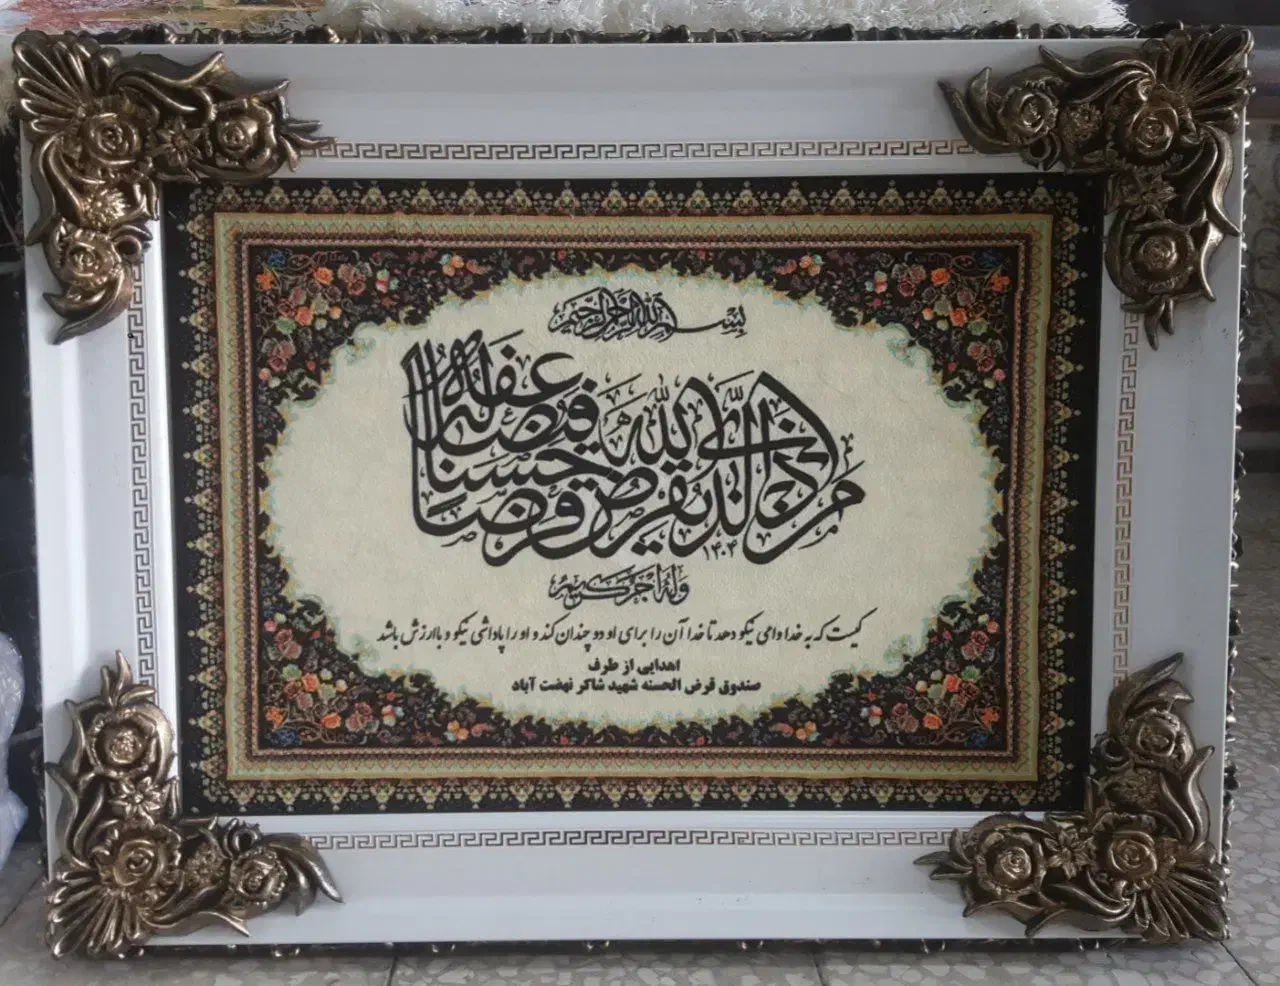 بسم الله الرحمن الرحیم
من ذا الذی یقرض الله قرضا حسنا فیضاعفه له
۱۴۰۴
وله اجر کریم
کیست که به خدا وامی نیکو دهد تا خدا آن را برای او دو چندان کند و او را پاداشی نیکو و باارزش باشد
اهدایی از طرف
صندوق قرض الحسنه شهید شاکر نهضت آباد